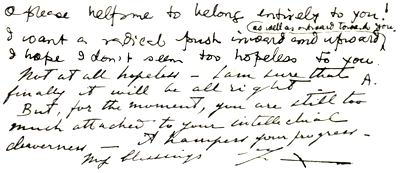 O please help me to belong entirely to you!
(as well as outward towards you.
I want a radical push inward and upward,
I hope I don't seem too hopeless to you.
Not at all hopeless — I am sure that A.
finally it will be all right —
But, for the moment, you are still too
much attached to your intellectual
cleverness — It hampers your progress —
My blessings